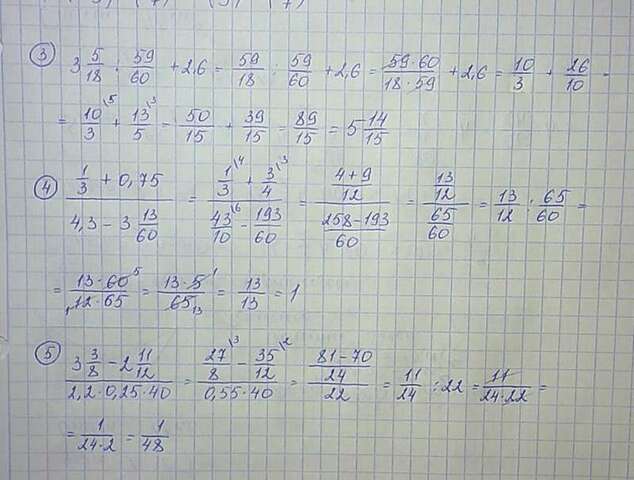 ③ 3 5/18 : 59/60 + 2,6 = 59/18 : 59/60 + 2,6 = 59·60/18·59 + 2,6 = 10/3 + 26/10 =
= 10\5/3 + 13\3/5 = 50/15 + 39/15 = 89/15 = 5 14/15
④ (1/3 + 0,75)/(4,3 - 3 13/60) = (1\4/3 + 3\3/4)/(43\6/10 - 193/60) = ((4+9)/12)/((258-193)/60) = (13/12)/(65/60) = 13/12 : 65/60 =
= 13·60 5/1 12·65 = 13·5 1/65 13 = 13/13 = 1
⑤ (3 3/8 - 2 11/12)/(2,2·0,25·40) = (27\3/8 - 35\2/12)/(0,55·40) = ((81-70)/24)/22 = 11/24 : 22 = 11/24·22 =
= 1/24·2 = 1/48